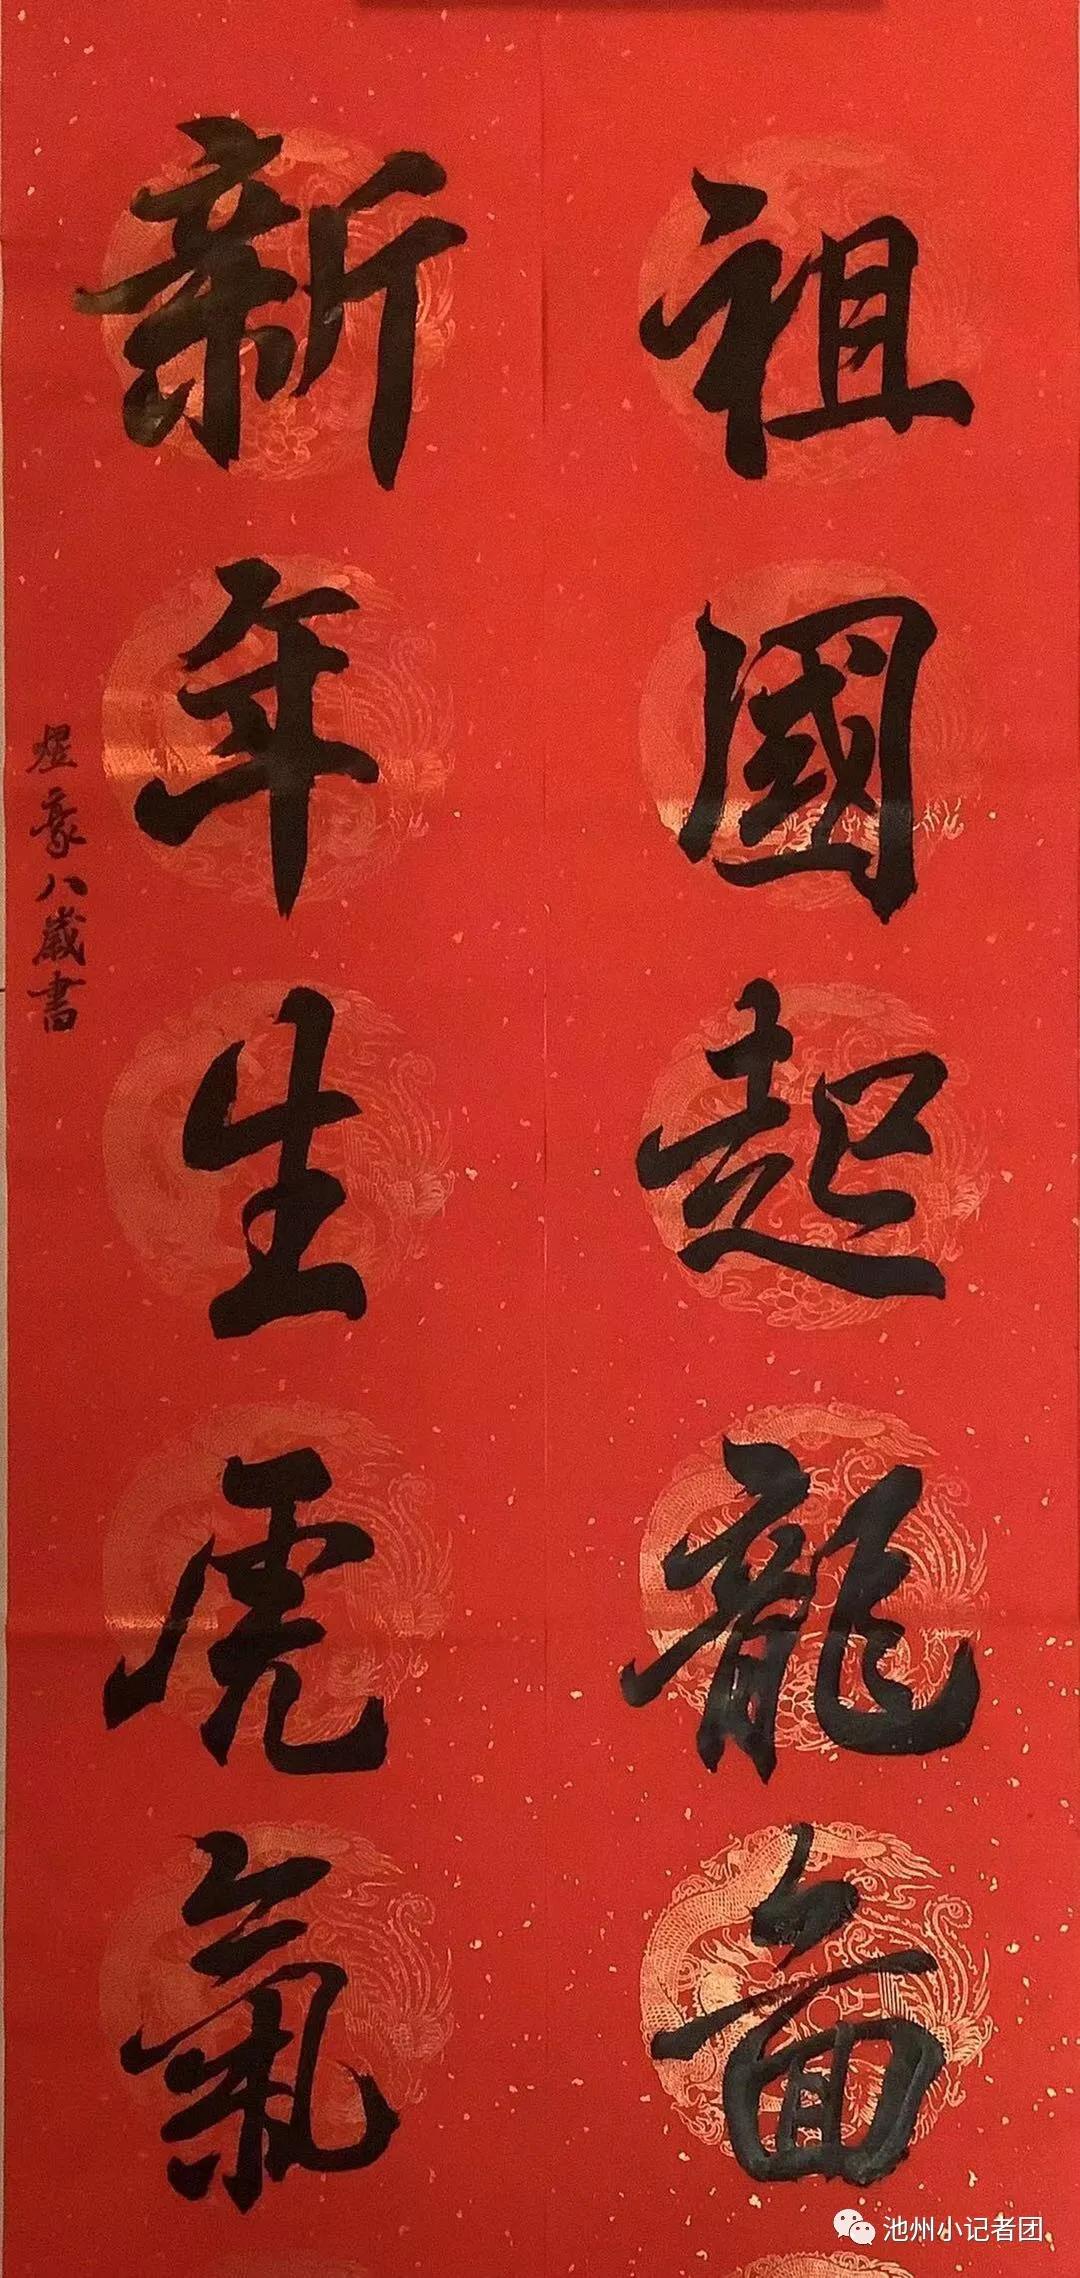 祖國起龍圖
新年生虎氣
煜豪八歲書
池州小记者团